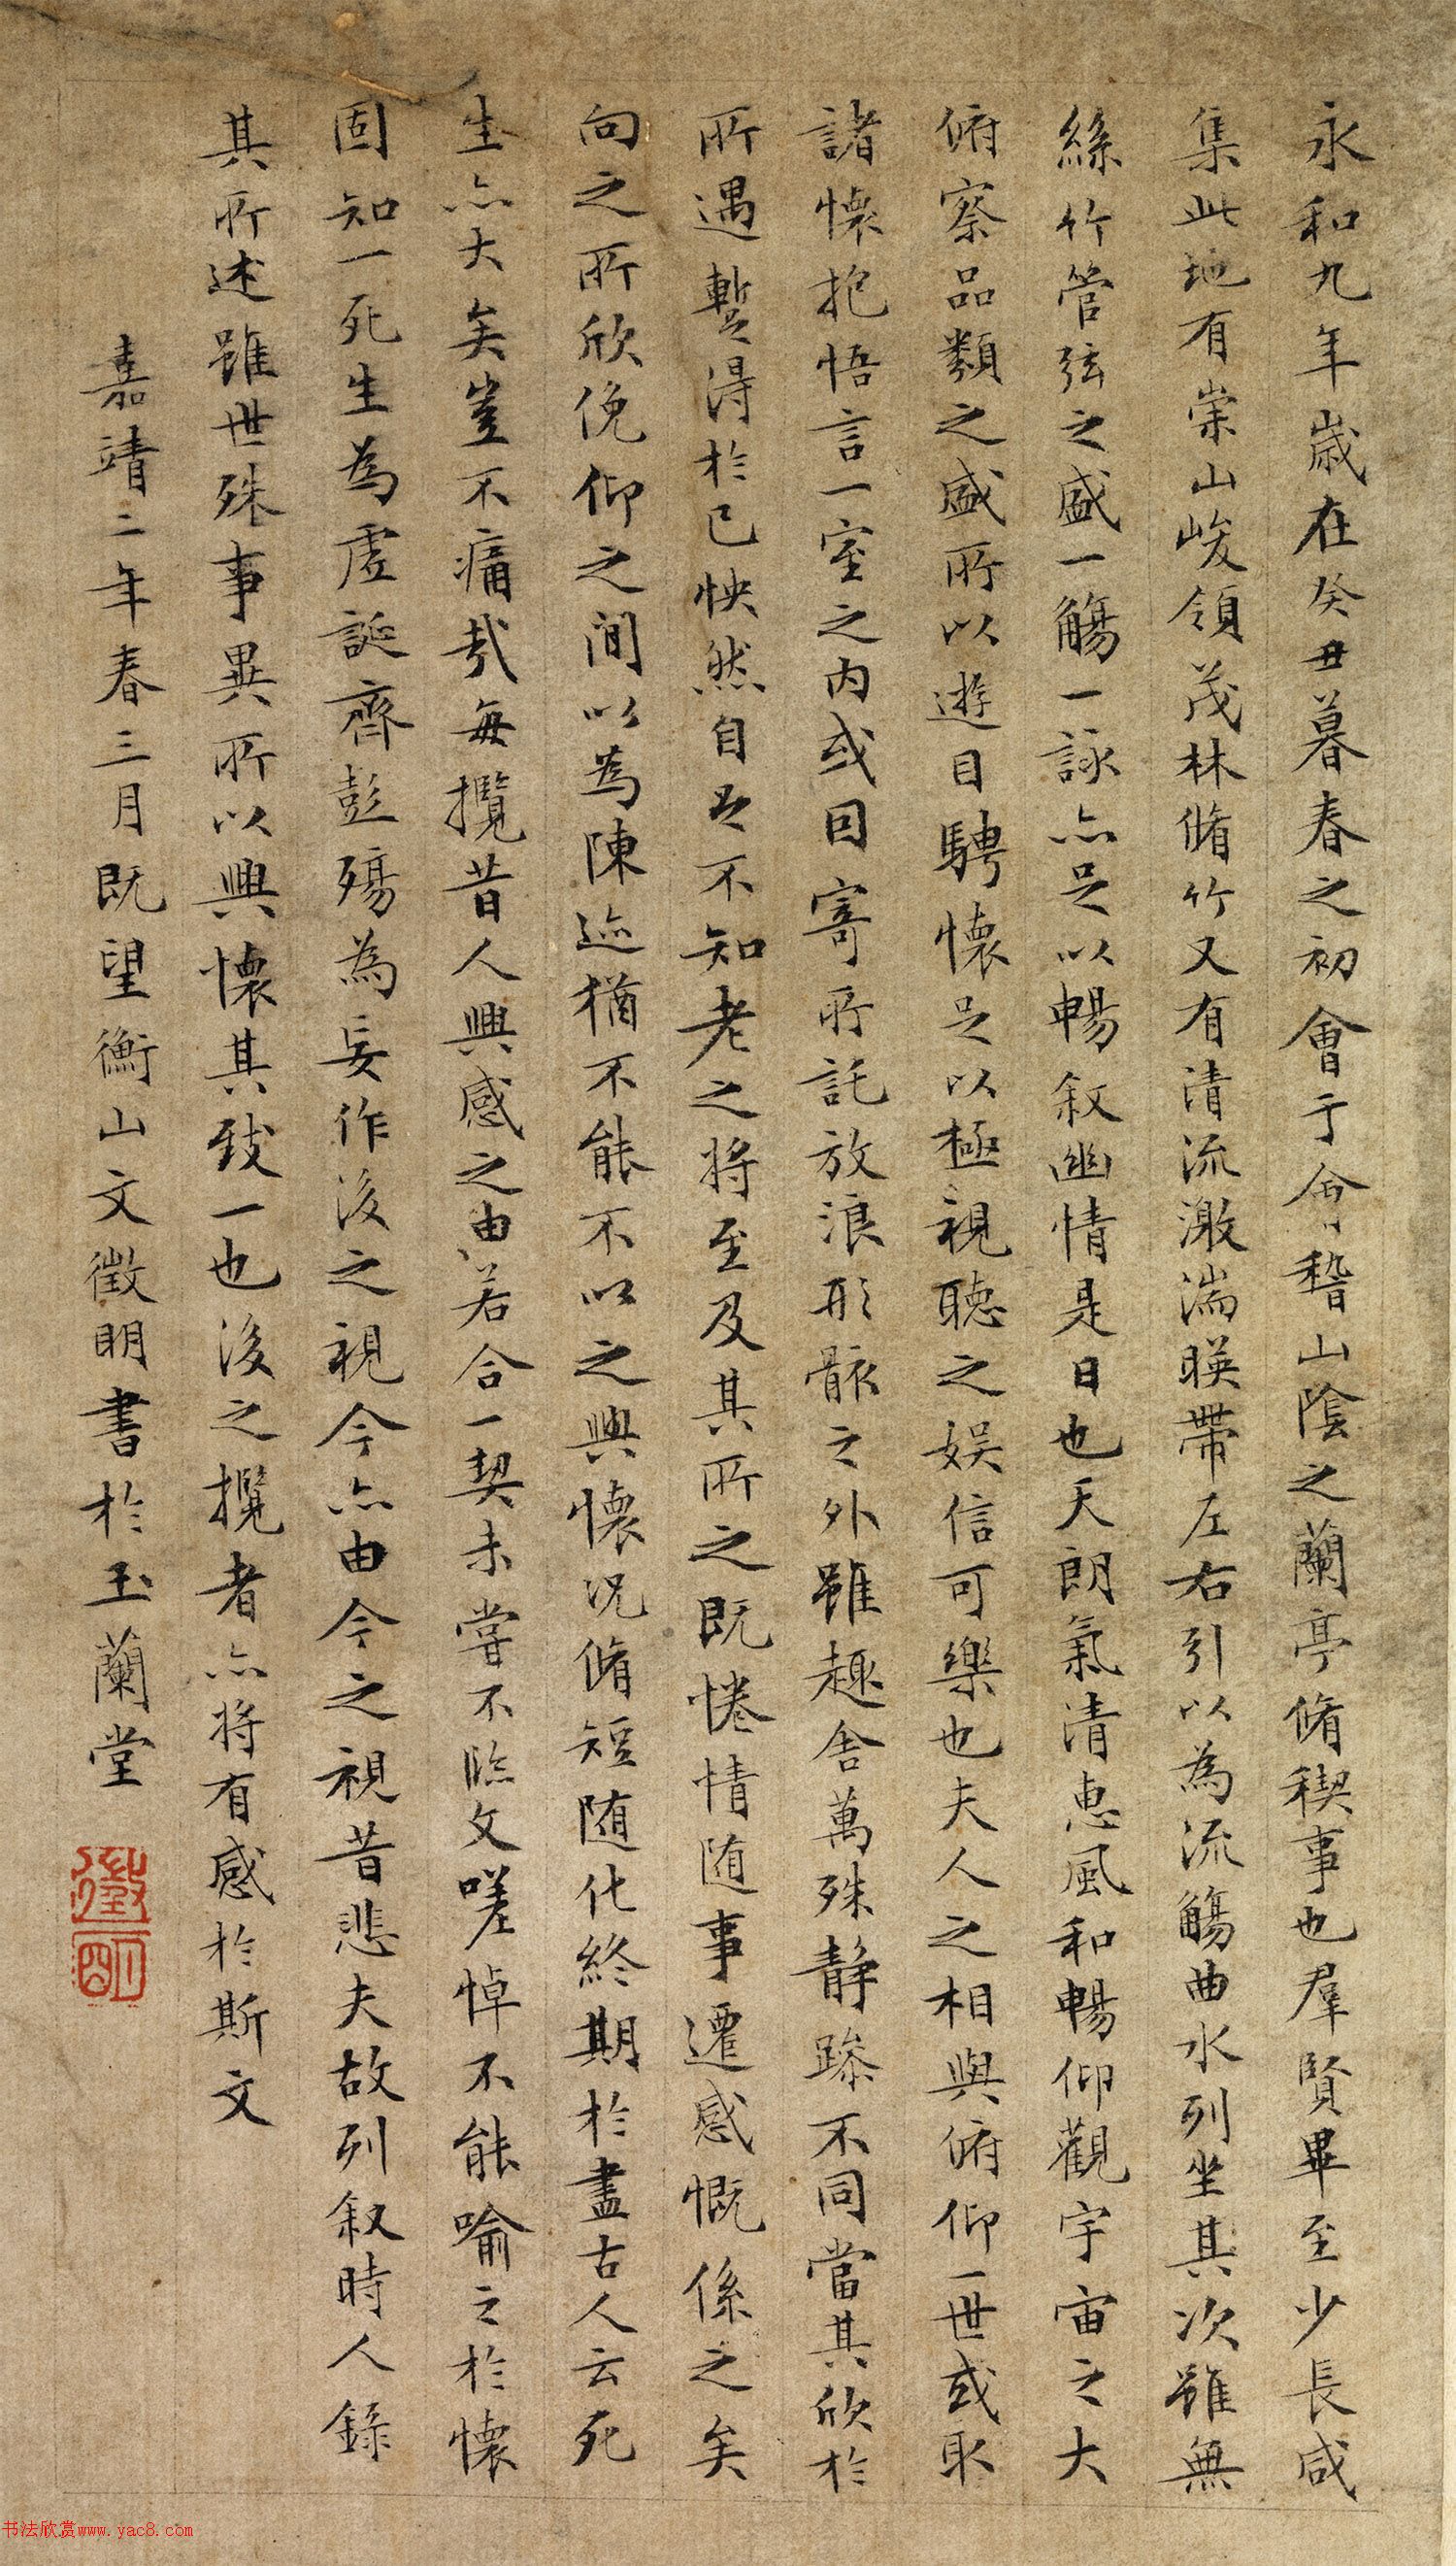 永和九年歲在癸丑暮春之初會于會稽山陰之蘭亭脩稧事也羣賢畢至少長咸
集此地有崇山峻領茂林脩竹又有清流激湍暎帶左右引以為流觴曲水列坐其次雖無
絲竹管弦之盛一觴一詠亦足以暢叙幽情是日也天朗氣清惠風和暢仰觀宇宙之大
俯察品類之盛所以遊目騁懷足以極視聽之娱信可樂也夫人之相與俯仰一世或取
諸懷抱悟言一室之内或因寄所託放浪形骸之外雖趣舍萬殊静躁不同當其欣於
所遇暫得於已怏然自足不知老之将至及其所之既惓情随事遷感慨係之矣
向之所欣俛仰之間以為陳迹猶不能不以之興懷况脩短随化終期於盡古人云死
生亦大矣豈不痛哉每攬昔人興感之由若合一契未嘗不臨文嗟悼不能喻之於懷
固知一死生為虚誕齊彭殤為妄作後之視今亦由今之視昔悲夫故列叙時人錄
其所述雖世殊事異所以興懷其致一也後之攬者亦将有感於斯文
嘉靖二年春三月既望衡山文徵明書於玉蘭堂
徵明
书法欣赏www.yac8.com